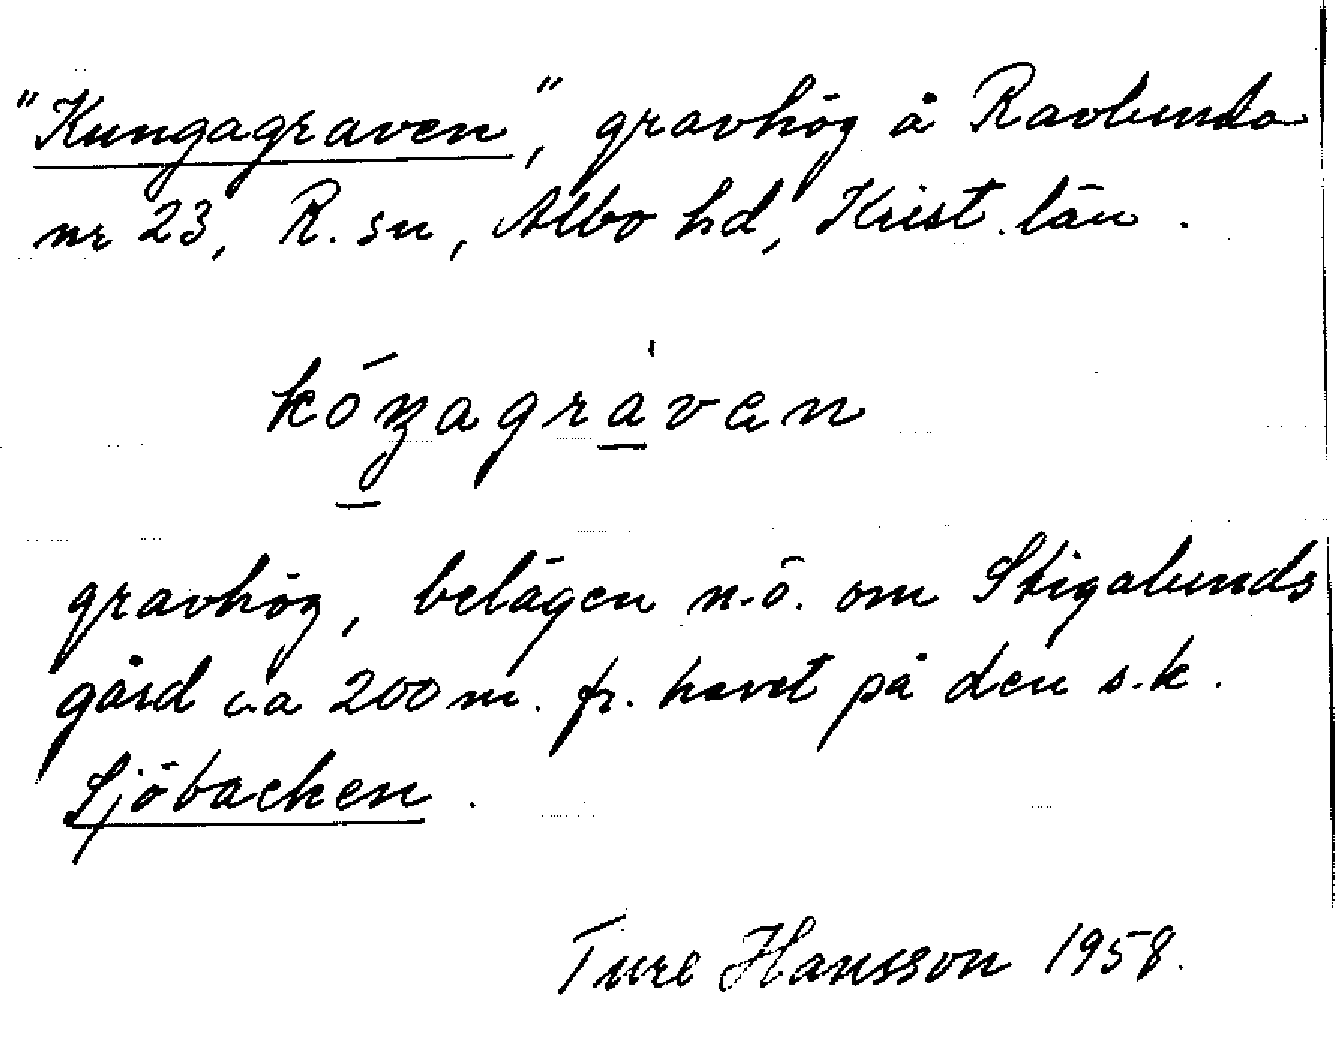 "Kungagraven", gravhög å Ravlunda
nr 23, R. sn, Albo hd, Krist. län.
kóŋagráven
gravhög, belägen n.ö. om Stigalunds
gård ca 200 m. fr. havet på den s.k.
Sjöbacken.
Ture Hansson 1958.